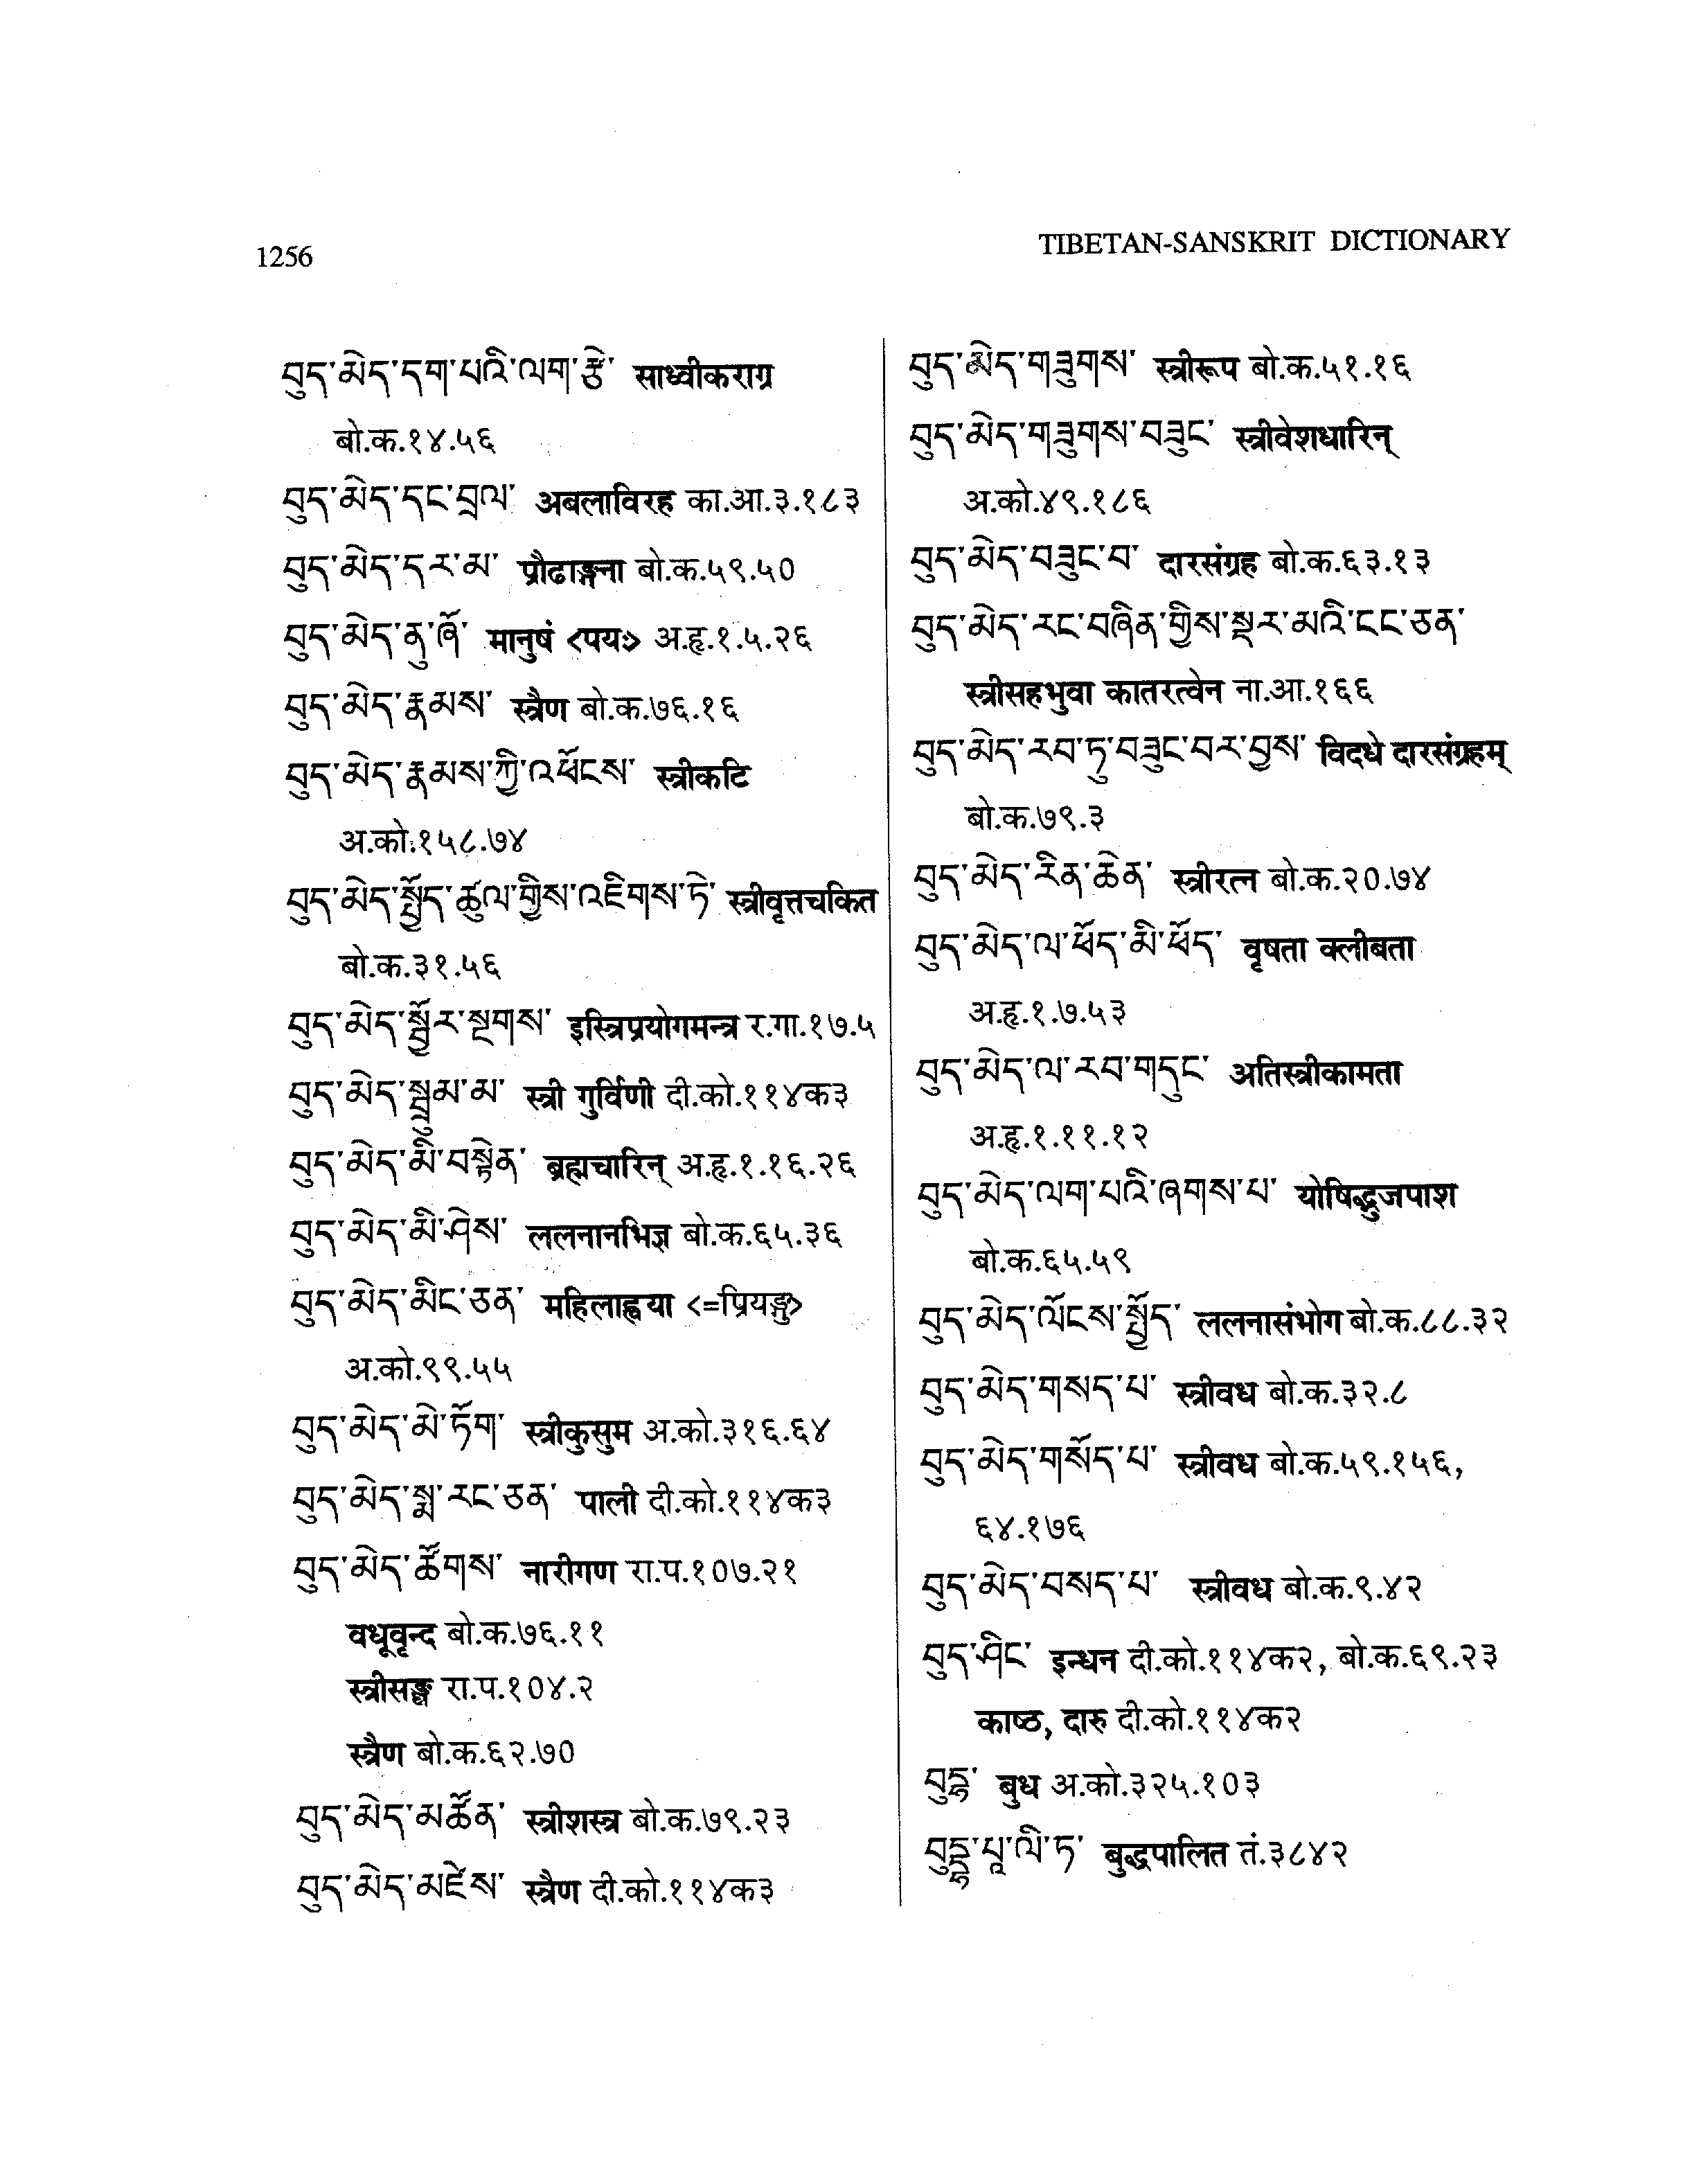 1256
TIBETAN-SANSKRIT DICTIONARY
བུད་མེད་དག་པའི་ལག་རྩེ་ साध्वीकराग्र
बो.क.१४.५६
བུད་མེད་དང་བྲལ་ अबलाविरह का.आ.३.१८३
བུད་མེད་དར་མ་ प्रौढाङ्गना बो.क.५९.५०
བུད་མེད་ནུ་ཞོ་ मानुषं <पयः> अ.हृ.१.५.२६
བུད་མེད་རྣམས་ स्त्रैण बो.क.७६.१६
བུད་མེད་རྣམས་ཀྱི་འཕོངས་ स्त्रीकटि
अ.को.१५८.७४
བུད་མེད་སྤྱོད་ཚུལ་གྱིས་འཇིགས་ཏེ་ स्त्रीवृत्तचकित
बो.क.३१.५६
བུད་མེད་སྦྱོར་སྔགས་ इस्त्रिप्रयोगमन्त्र र.गा.१७.५
བུད་མེད་སྦྲུམ་མ་ स्त्री गुर्विणी दी.को.११४क३
བུད་མེད་མི་བསྟེན་ ब्रह्मचारिन् अ.हृ.१.१६.२६
བུད་མེད་མི་ཤེས་ ललनानभिज्ञ बो.क.६५.३६
བུད་མེད་མིང་ཅན་ महिलाह्वया <=प्रियङ्गु>
अ.को.९९.५५
བུད་མེད་མེ་ཏོག་ स्त्रीकुसुम अ.को.३१६.६४
བུད་མེད་སྨ་རང་ཅན་ पाली दी.को.११४क३
བུད་མེད་ཚོགས་ नारीगण रा.प.१०७.२१
वधूवृन्द बो.क.७६.११
स्त्रीसङ्घ रा.प.१०४.२
स्त्रैण बो.क.६२.७०
བུད་མེད་མཚོན་ स्त्रीशस्त्र बो.क.७९.२३
བུད་མེད་མཛེས་ स्त्रैण दी.को.११४क३
བུད་མེད་གཟུགས་ स्त्रीरूप बो.क.५१.१६
བུད་མེད་གཟུགས་བཟུང་ स्त्रीवेशधारिन्
अ.को.४९.१८६
བུད་མེད་བཟུང་བ་ दारसंग्रह बो.क.६३.१३
བུད་མེད་རང་བཞིན་གྱིས་སྡར་མའི་ངང་ཅན་
स्त्रीसहभुवा कातरत्वेन ना.आ.१६६
བུད་མེད་རབ་ཏུ་བཟུང་བར་བྱས་ विदधे दारसंग्रहम्
बो.क.७९.३
བུད་མེད་རིན་ཆེན་ स्त्रीरत्न बो.क.२०.७४
བུད་མེད་ལ་ཕོད་མི་ཕོད་ वृषता क्लीबता
अ.हृ.१.७.५३
བུད་མེད་ལ་རབ་གདུང་ अतिस्त्रीकामता
अ.हृ.१.११.१२
བུད་མེད་ལག་པའི་ཞགས་པ་ योषिद्भुजपाश
बो.क.६५.५९
བུད་མེད་ལོངས་སྤྱོད་ ललनासंभोग बो.क.८८.३२
བུད་མེད་གསད་པ་ स्त्रीवध बो.क.३२.८
བུད་མེད་གསོད་པ་ स्त्रीवध बो.क.५९.१५६,
६४.१७६
བུད་མེད་བསད་པ་ स्त्रीवध बो.क.९.४२
བུད་ཤིང་ इन्धन दी.को.११४क२, बो.क.६९.२३
काष्ठ, दारु दी.को.११४क२
བུདྷ་ बुध अ.को.३२५.१०३
བུདྡྷ་པཱ་ལི་ཏ་ बुद्धपालित तं.३८४२